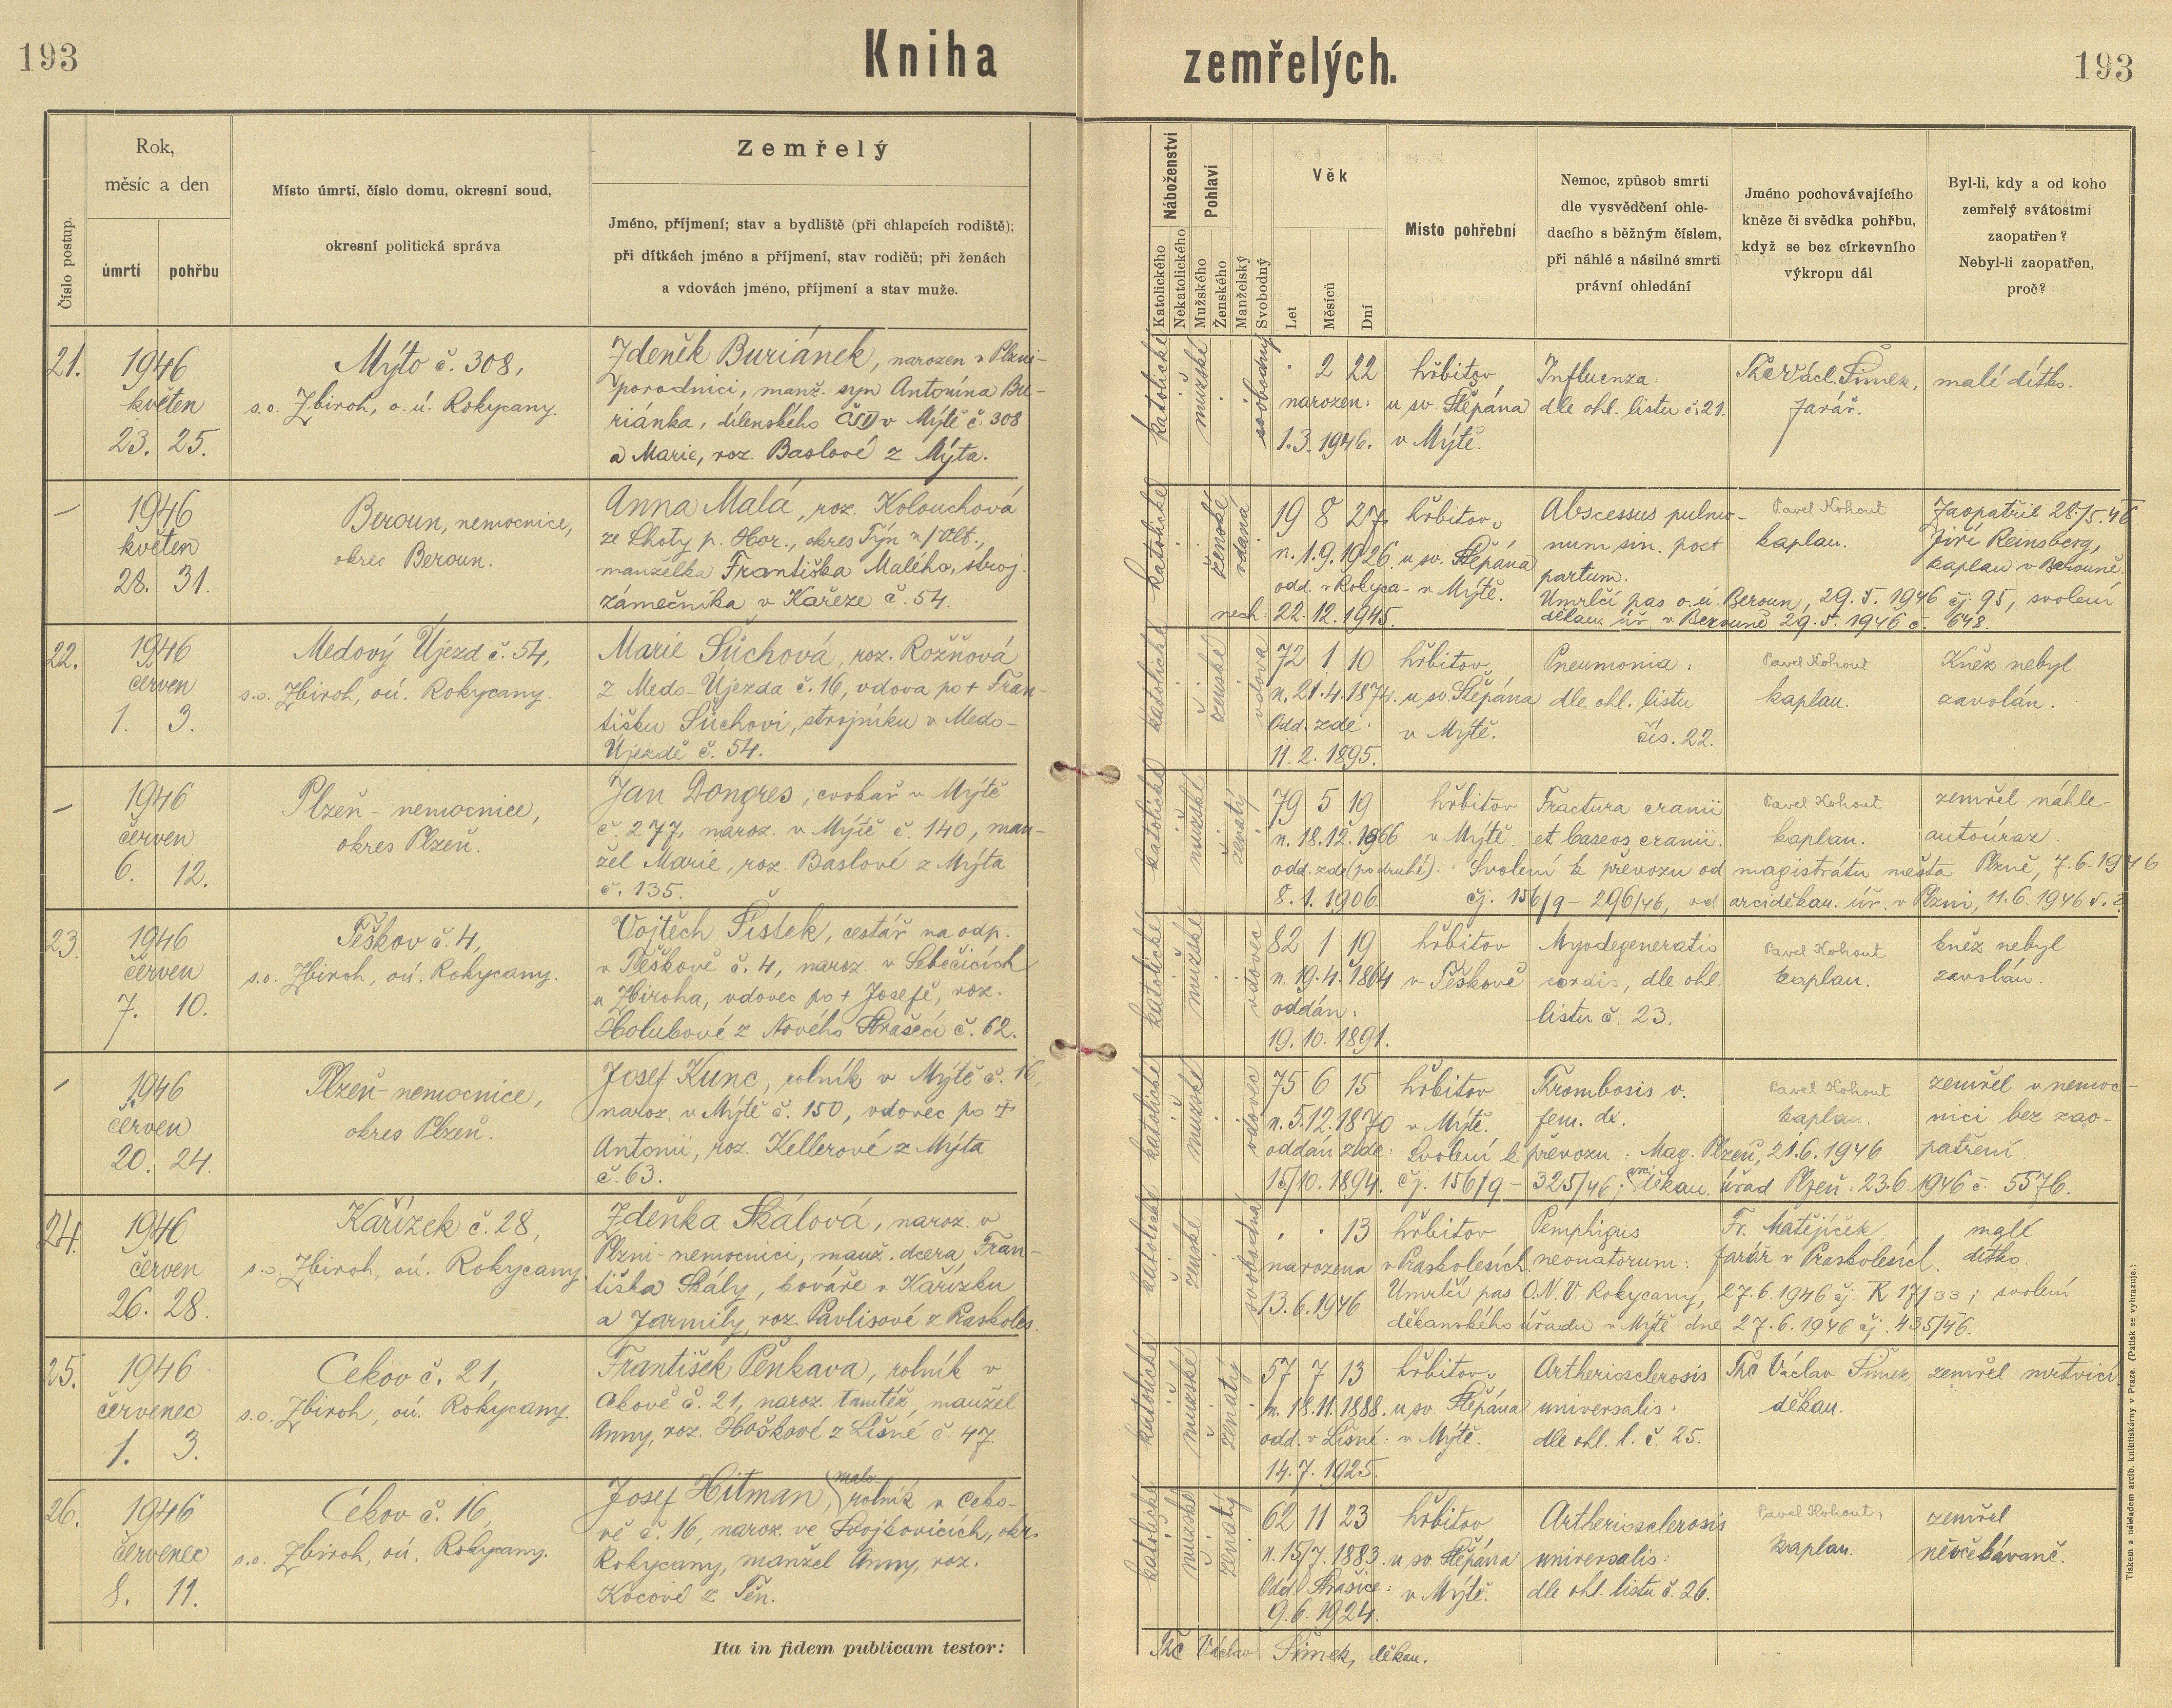 193
Kniha zemřelých.
193
Číslo postup.
Rok,
měsíc a den
úmrtí
pohřbu
Místo úmrtí, číslo domu, okresní soud,
okresní politická správa
Zemřelý
Jméno, příjmení; stav a bydliště (při chlapcích rodiště);
při dítkách jméno a příjmení, stav rodičů; při ženách
a vdovách jméno, příjmení a stav muže.
Náboženství
Katolického
Nekatolického
Pohlaví
Mužského
Ženského
Manželský
Svobodný
Věk
Let
Měsíců
Dní
Místo pohřební
Nemoc, způsob smrti
dle vysvědčení ohle-
dacího s běžným číslem,
při náhlé a násilné smrti
právní ohledání
Jméno pochovávajícího
kněze či svědka pohřbu,
když se bez církevního
výkropu dál
Byl-li, kdy a od koho
zemřelý svátostmi
zaopatřen?
Nebyl-li zaopatřen,
proč?
21.
1946
květen
23. 25.
Mýto č. 308,
s.o. Zbiroh, o.ú. Rokycany.
Zdeněk Buriánek, narozen v Plzni-
porodnici, manž. syn Antonína Bu-
riánka, dílenského ČSD v Mýtě č. 308
a Marie, roz. Baslové z Mýta.
katolické
mužské
svobodný
. 2 22
narozen:
1.3.1946.
hřbitov
u sv. Štěpána
v Mýtě.
Influenza:
dle ohl. listu č. 21.
Václ. Šimek,
farář.
malé dítko.
—
1946
květen
28. 31.
Beroun, nemocnice,
okres Beroun.
Anna Malá, roz. Kolouchová
ze Lhoty p. Hor., okres Týn n/Vlt.,
manželka Františka Malého, stroj.
zámečníka v Kařeze č. 54.
katolické
ženské
vdaná
19 8 27
n. 1.9.1926.
odd. v Rokyca-
nech: 22.12.1945.
hřbitov
u sv. Štěpána
v Mýtě.
Abscessus pulmo-
num sin. post
partum.
Pavel Kohout
kaplan.
Zaopatřil 28./5.46
Jiří Reinsberg,
kaplan v Berouně.
Úmrlčí pas o.ú. Beroun, 29.5.1946 čj. 95, svolení
děkan. úř. v Berouně 29.5.1946 č. 648.
22.
1946
červen
1. 3.
Medový Újezd č. 54,
s.o. Zbiroh, oú. Rokycany.
Marie Süchová, roz. Rožňová
z Medo-Újezda č. 16, vdova po + Fran-
tišku Süchovi, strojníku v Medo-
Újezdě č. 54.
katolické
ženské
vdova
72 1 10
n. 21.4.1874.
Odd. zde:
11.2.1895.
hřbitov
u sv. Štěpána
v Mýtě.
Pneumonia:
dle ohl. listu
čís. 22.
Pavel Kohout
kaplan.
Kněz nebyl
zavolán.
—
1946
červen
6. 12.
Plzeň - nemocnice,
okres Plzeň.
Jan Dongres, cvokař v Mýtě
č. 277, naroz. v Mýtě č. 140, man-
žel Marie, roz. Baslové z Mýta
č. 135.
katolické
mužské
ženatý
79 5 19
n. 18.12.1866
odd. zde (po druhé).
8.1.1906.
hřbitov
v Mýtě.
Fractura cranii
et baseos cranii.
Pavel Kohout
kaplan.
zemřel náhle-
autoúraz.
Svolení k převozu od magistrátu města Plzně, 7.6.1946
čj. 156/9 - 296/46, od arciděkan. úř. v Plzni, 11.6.1946
23.
1946
červen
7. 10.
Těškov č. 4,
s.o. Zbiroh, oú. Rokycany.
Vojtěch Šistek, cestář na odp.
v Těškově č. 4, naroz. v Sebečicích
u Zbiroha, vdovec po + Josefě, roz.
Holubové z Nového Strašecí č. 62.
katolické
mužské
vdovec
82 1 19
n. 19.4.1864
oddán:
19.10.1891.
hřbitov
v Těškově
Myodegeneratio
cordis, dle ohl.
listu č. 23.
Pavel Kohout
kaplan.
kněz nebyl
zavolán.
—
1946
červen
20. 24.
Plzeň-nemocnice,
okres Plzeň.
Josef Kunc, rolník v Mýtě č. 16,
naroz. v Mýtě č. 150, vdovec po +
Antonii, roz. Kellerové z Mýta
č. 63.
katolické
mužské
vdovec
75 6 15
n. 5.12.1870
oddán zde:
15/10.1894.
hřbitov
v Mýtě.
Trombosis v.
fem. dx.
Pavel Kohout
kaplan.
zemřel v nemoc-
nici bez zao-
patření.
Svolení k převozu: Mag. Plzeň, 21.6.1946
čj. 156/9 - 325/46; arciděkan. úřad Plzeň. 23.6.1946 č. 5576.
24.
1946
červen
26. 28.
Kařízek č. 28,
s.o. Zbiroh, oú. Rokycany
Zdeňka Skálová, naroz. v
Plzni-nemocnici, manž. dcera Fran-
tiška Skály, kováře v Kařízku
a Jarmily, roz. Pavlisové z Praskoles.
katolické
ženské
svobodná
. . 13
narozena
13.6.1946
hřbitov
v Praskolesích.
Pemphigus
neonatorum:
Fr. Matějíček,
farář v Praskolesích.
malé
dítko.
Úmrlčí pas O.N.V. Rokycany, 27.6.1946 čj. R 17/33; svolení
děkanského úřadu v Mýtě dne 27.6.1946 čj. 435/46.
25.
1946
červenec
1. 3.
Cekov č. 21,
s.o. Zbiroh, oú. Rokycany.
František Pěnkava, rolník v
Cekově č. 21, naroz. tamtéž, manžel
Anny, roz. Hoškové z Líšné č. 47.
katolické
mužské
ženatý
57 7 13
n. 18.11.1888.
odd. v Lísné:
14.7.1925.
hřbitov
u sv. Štěpána
v Mýtě.
Artheriosclerosis
universalis:
dle ohl. l. č. 25.
Václav Šimek,
děkan.
zemřel mrtvicí
26.
1946
červenec
8. 11.
Cekov č. 16,
s.o. Zbiroh, oú. Rokycany.
Josef Hitman, malo-
rolník v Ceko-
vě č. 16, naroz. ve Svojkovicích, okr.
Rokycany, manžel Anny, roz.
Kocové z Těn.
katolické
mužské
ženatý
62 11 23
n. 15/7.1883.
Odd. Strašice:
9.6.1924.
hřbitov
u sv. Štěpána
v Mýtě.
Artheriosclerosis
universalis:
dle ohl. listu č. 26.
Pavel Kohout,
kaplan.
zemřel
neočekávaně.
Ita in fidem publicam testor:
Václav Šimek, děkan.
Tiskem a nákladem arcib. knihtiskárny v Praze. (Patisk se vyhrazuje.)